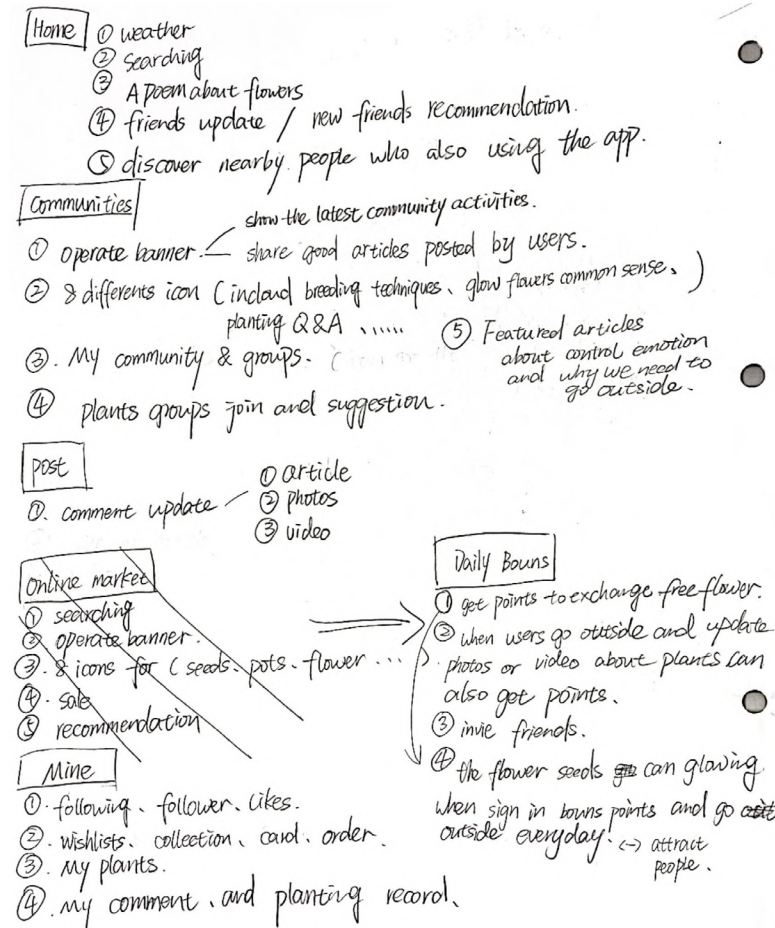 Home
① weather
② searching
③ A poem about flowers
④ friends update / new friends recommendation.
⑤ discover nearby people who also using the app.
Communities
① operate banner.
show the latest community activities.
share good articles posted by users.
② 8 differents icon (incloud breeding techniques、glow flowers common sense、
planting Q&A ......)
③. My community & groups. (
④ plants groups join and suggestion.
⑤ Featured articles
about control emotion
and why we need to
go outside.
post
①. comment update
① article
② photos
③ video
Online market
① searching
② operate banner.
③. 8 icons for (seeds. pots. flower ... ).
④. sale
⑤ recommendation
Daily Bouns
① get points to exchange free flower.
② when users go outside and update
photos or video about plants can
also get points.
③ invie friends.
④ the flower seeds can glowing
when sign in bouns points and go
outside everyday! (→) attract
people.
Mine
①. following、follower. Likes.
②. wishlists、collection、card、order.
③. My plants.
④. My comment、and planting record、